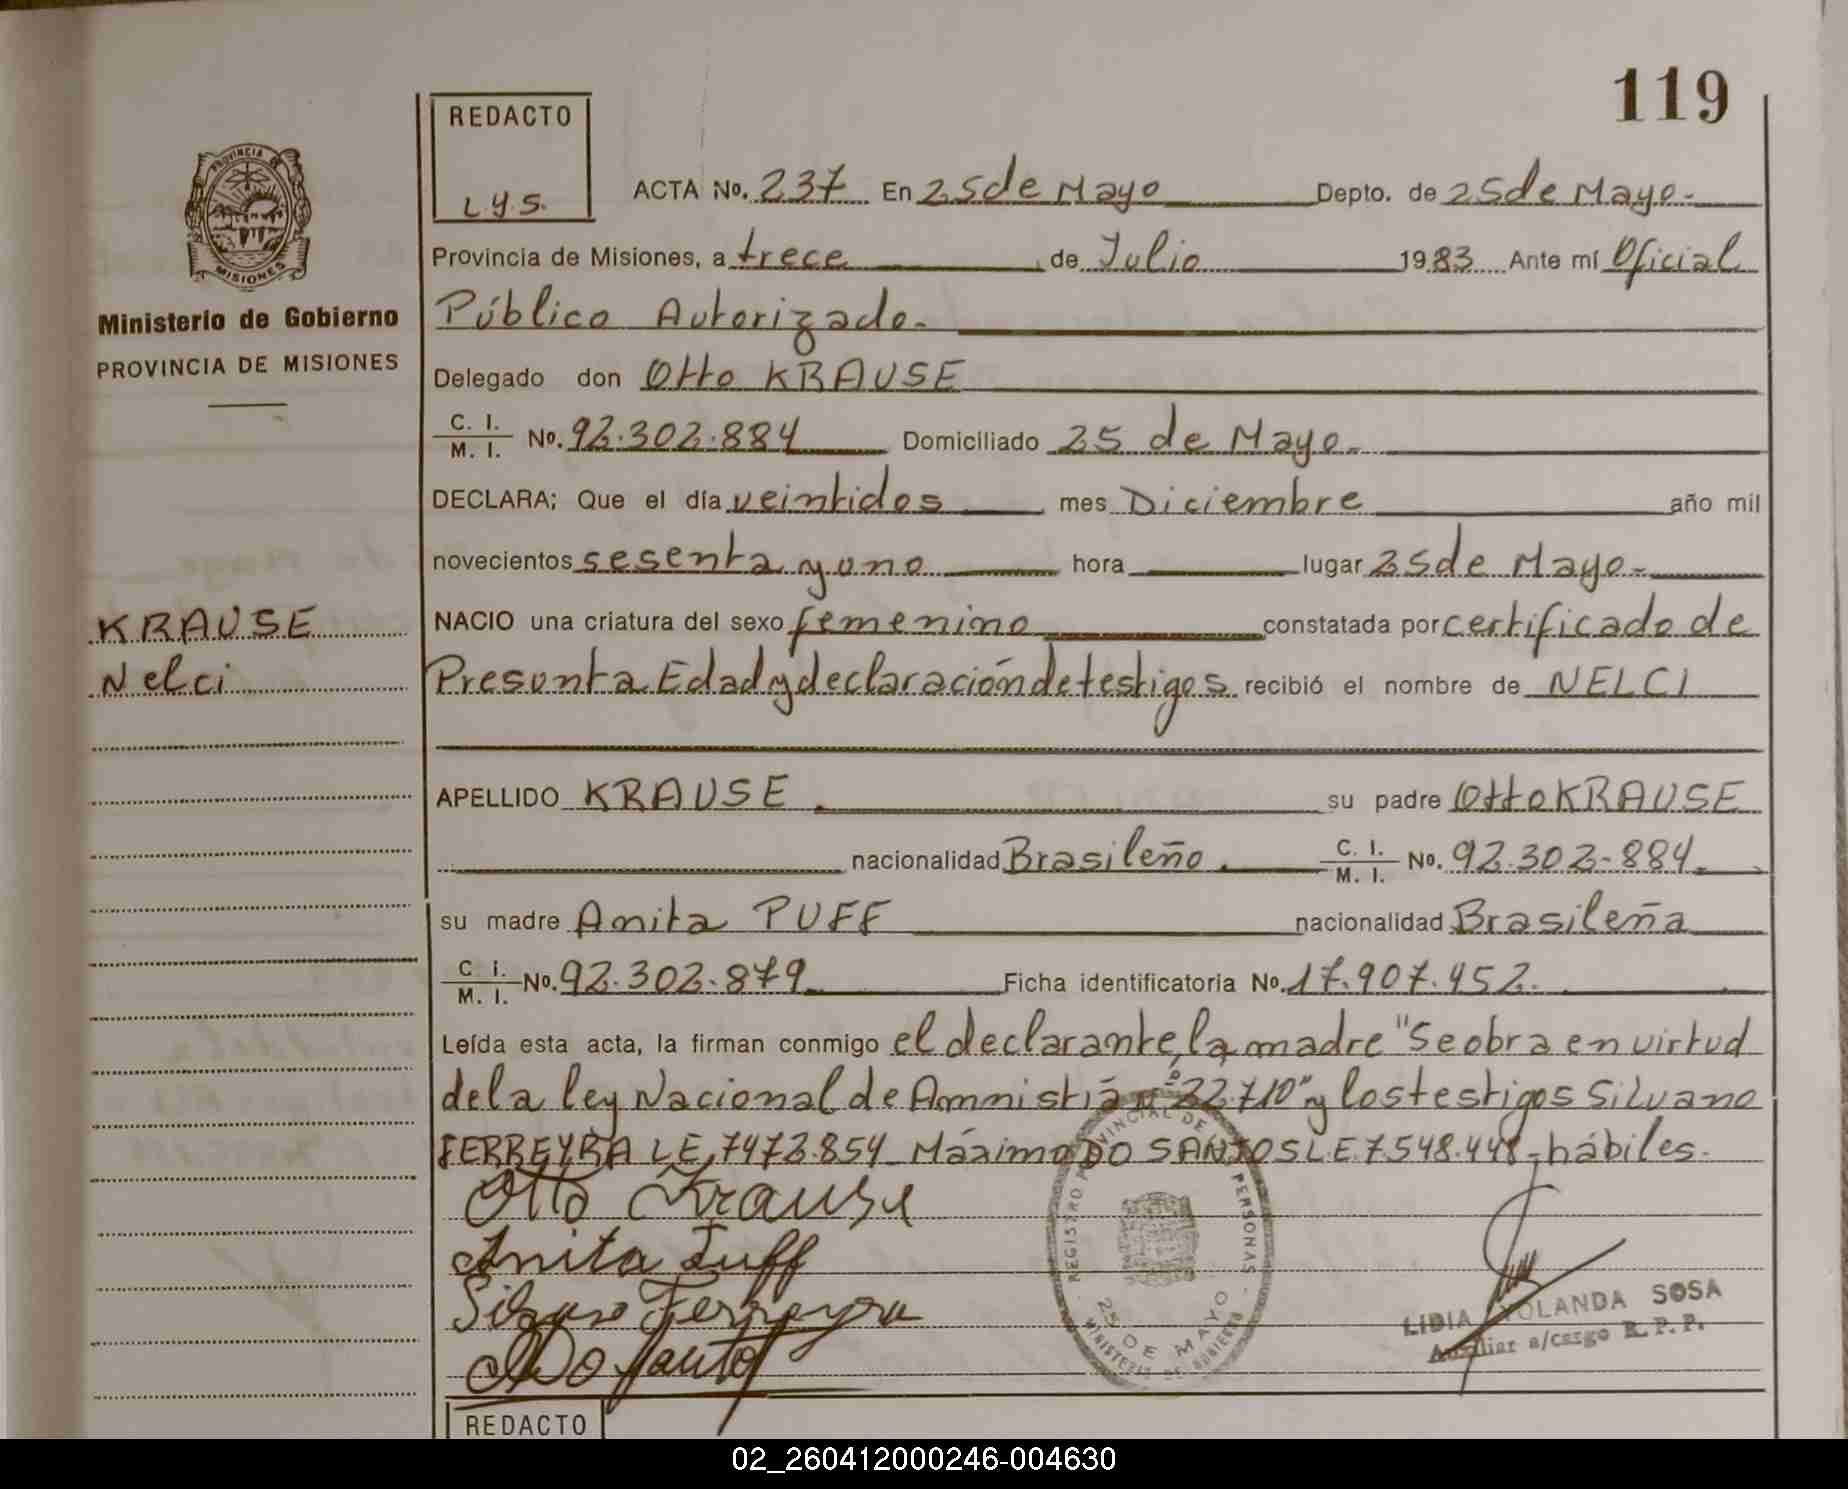 119
REDACTO
L.Y.S.
ACTA No. 237 En 25 de Mayo Depto. de 25 de Mayo.-
Provincia de Misiones, a trece de Julio 1983 Ante mí Oficial
Público Autorizado.-
Delegado don Otto KRAUSE
C. I. / M. I. No. 92.302.884 Domiciliado 25 de Mayo.-
DECLARA; Que el día veintidos mes Diciembre año mil
novecientos sesenta y uno hora lugar 25 de Mayo.-
NACIO una criatura del sexo femenino constatada por certificado de
Presunta Edad y declaración de testigos recibió el nombre de NELCI
APELLIDO KRAUSE su padre Otto KRAUSE
nacionalidad Brasileño. C. I. / M. I. No. 92.302.884
su madre Anita PUFF nacionalidad Brasileña
C. I. / M. I. No. 92.302.879 Ficha identificatoria No. 17.907.452.
Leída esta acta, la firman conmigo el declarante, la madre "Se obra en virtud
de la ley Nacional de Amnistiá Nº 22.710" y los testigos Silvano
FERREYRA LE. 7472.854 Máximo DO SANTOS L.E. 7.548.448, hábiles.
Otto Krause
Anita Puff
Silvano Ferreyra
Do Santo
REGISTRO PROVINCIAL DE PERSONAS
25 DE MAYO
MINISTERIO DE GOBIERNO
LIDIA YOLANDA SOSA
Auxiliar a/cargo R. P. P.
REDACTO
PROVINCIA D
MISIONES
Ministerio de Gobierno
PROVINCIA DE MISIONES
KRAUSE
Nelci
02_260412000246-004630